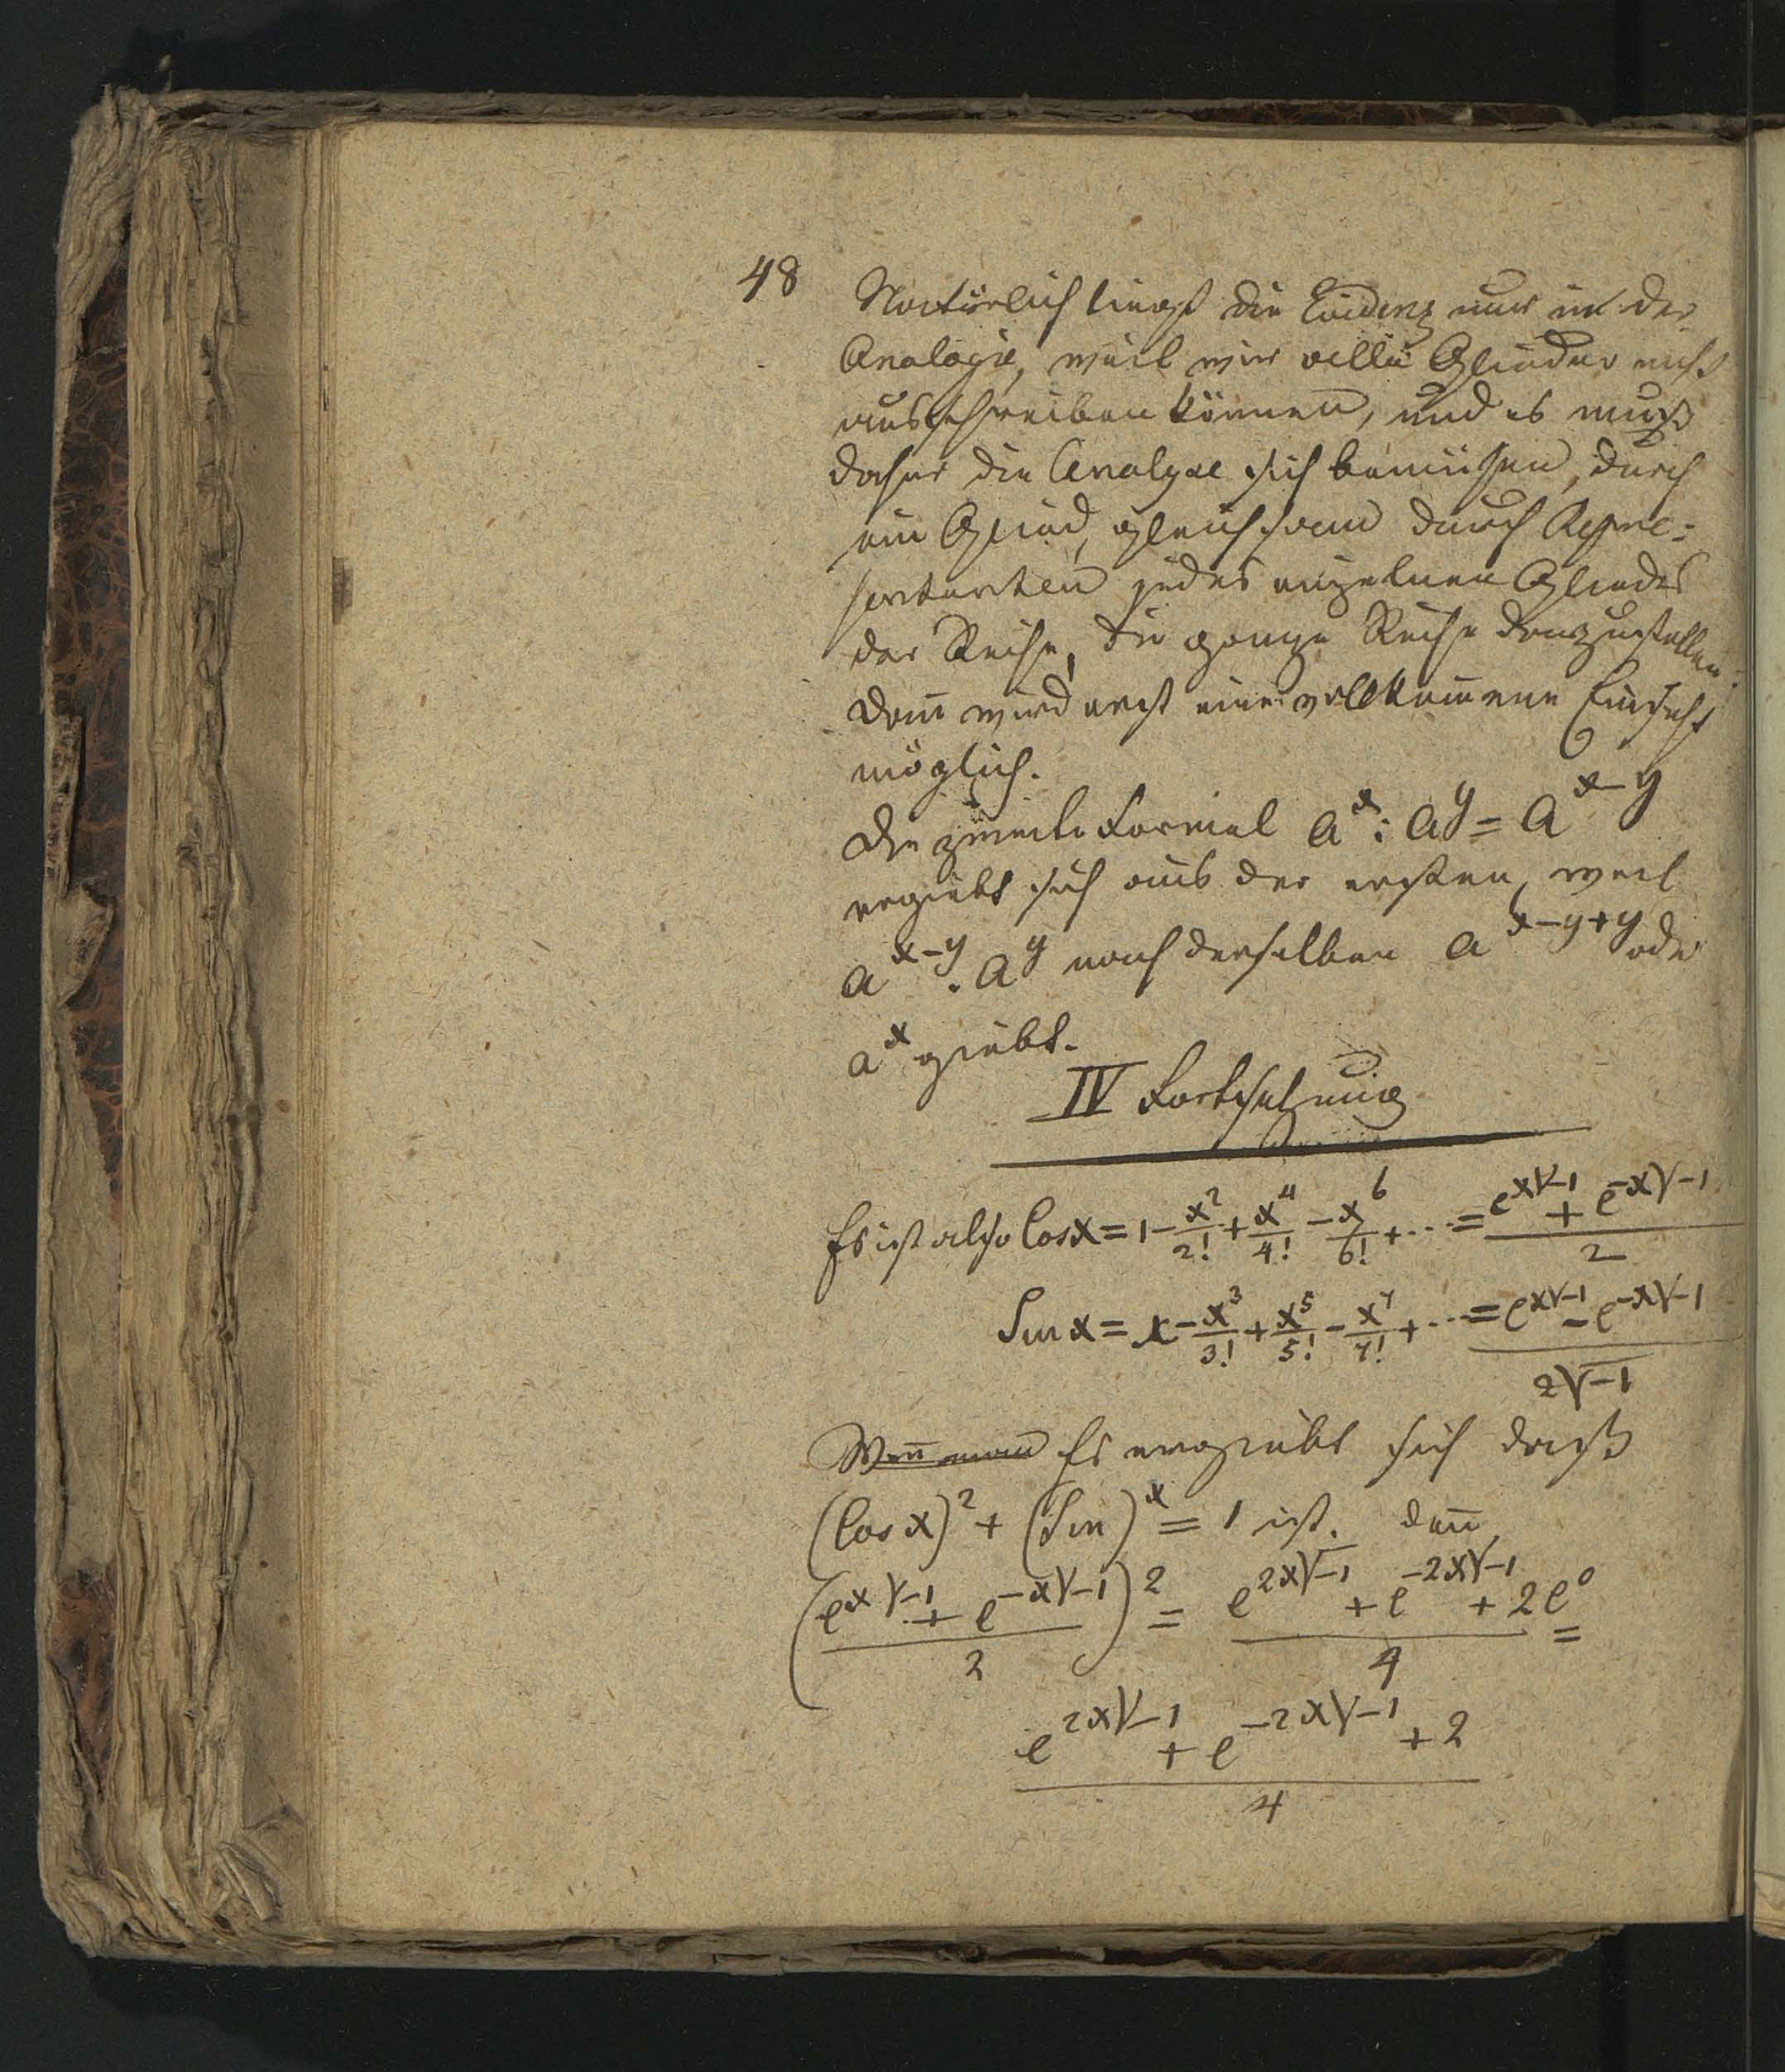 48
Natürlich liegt die Evidenz nur in der
Analogie, weil wir alle Glieder nicht
ausschreiben können, und es muß
daher die Analyse sich bemühen, durch
ein Glied, gleichsam durch Repre-
sentanten jedes einzelnen Gliedes
der Reihe, die ganze Reihe darzustellen.
Dann wird erst eine vollkommene Einsicht
möglich.
Die zweite Formel a^x : a^y = a^{x-y}
ergiebt sich aus der ersten, weil
a^{x-y} . a^y nach derselben a^{x-y+y} oder
a^x giebt.
IV Fortsetzung
Es ist also Cos x = 1 - x^2/2! + x^4/4! - x^6/6! + ... = (e^{x√-1} + e^{-x√-1})/2
Sin x = x - x^3/3! + x^5/5! - x^7/7! + ... = (e^{x√-1} - e^{-x√-1})/2√-1
Weñ man Es ergiebt sich daß
(Cos x)^2 + (Sin)^x = 1 ist. deñ
((e^{x√-1} + e^{-x√-1})/2)^2 = (e^{2x√-1} + e^{-2x√-1} + 2e^0)/4 =
(e^{2x√-1} + e^{-2x√-1} + 2)/4